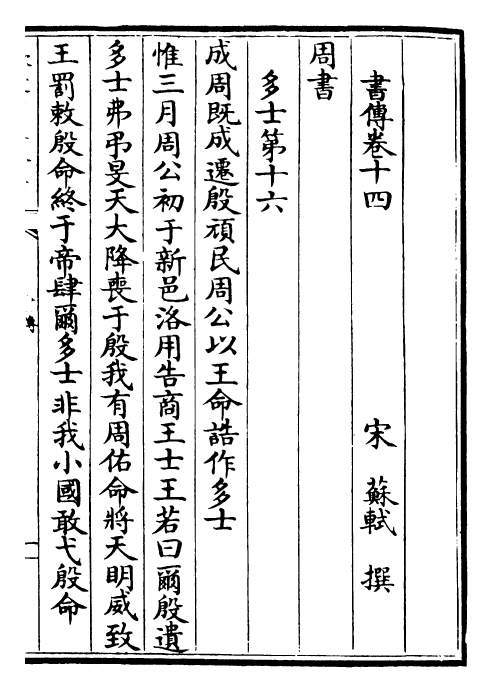 書傳卷十四
宋 蘇軾 撰
周書
多士第十六
成周既成遷殷頑民周公以王命誥作多士
惟三月周公初于新邑洛用告商王士王若曰爾殷遺
多士弗弔旻天大降喪于殷我有周佑命將天明威致
王罰敕殷命終于帝肆爾多士非我小國敢弋殷命